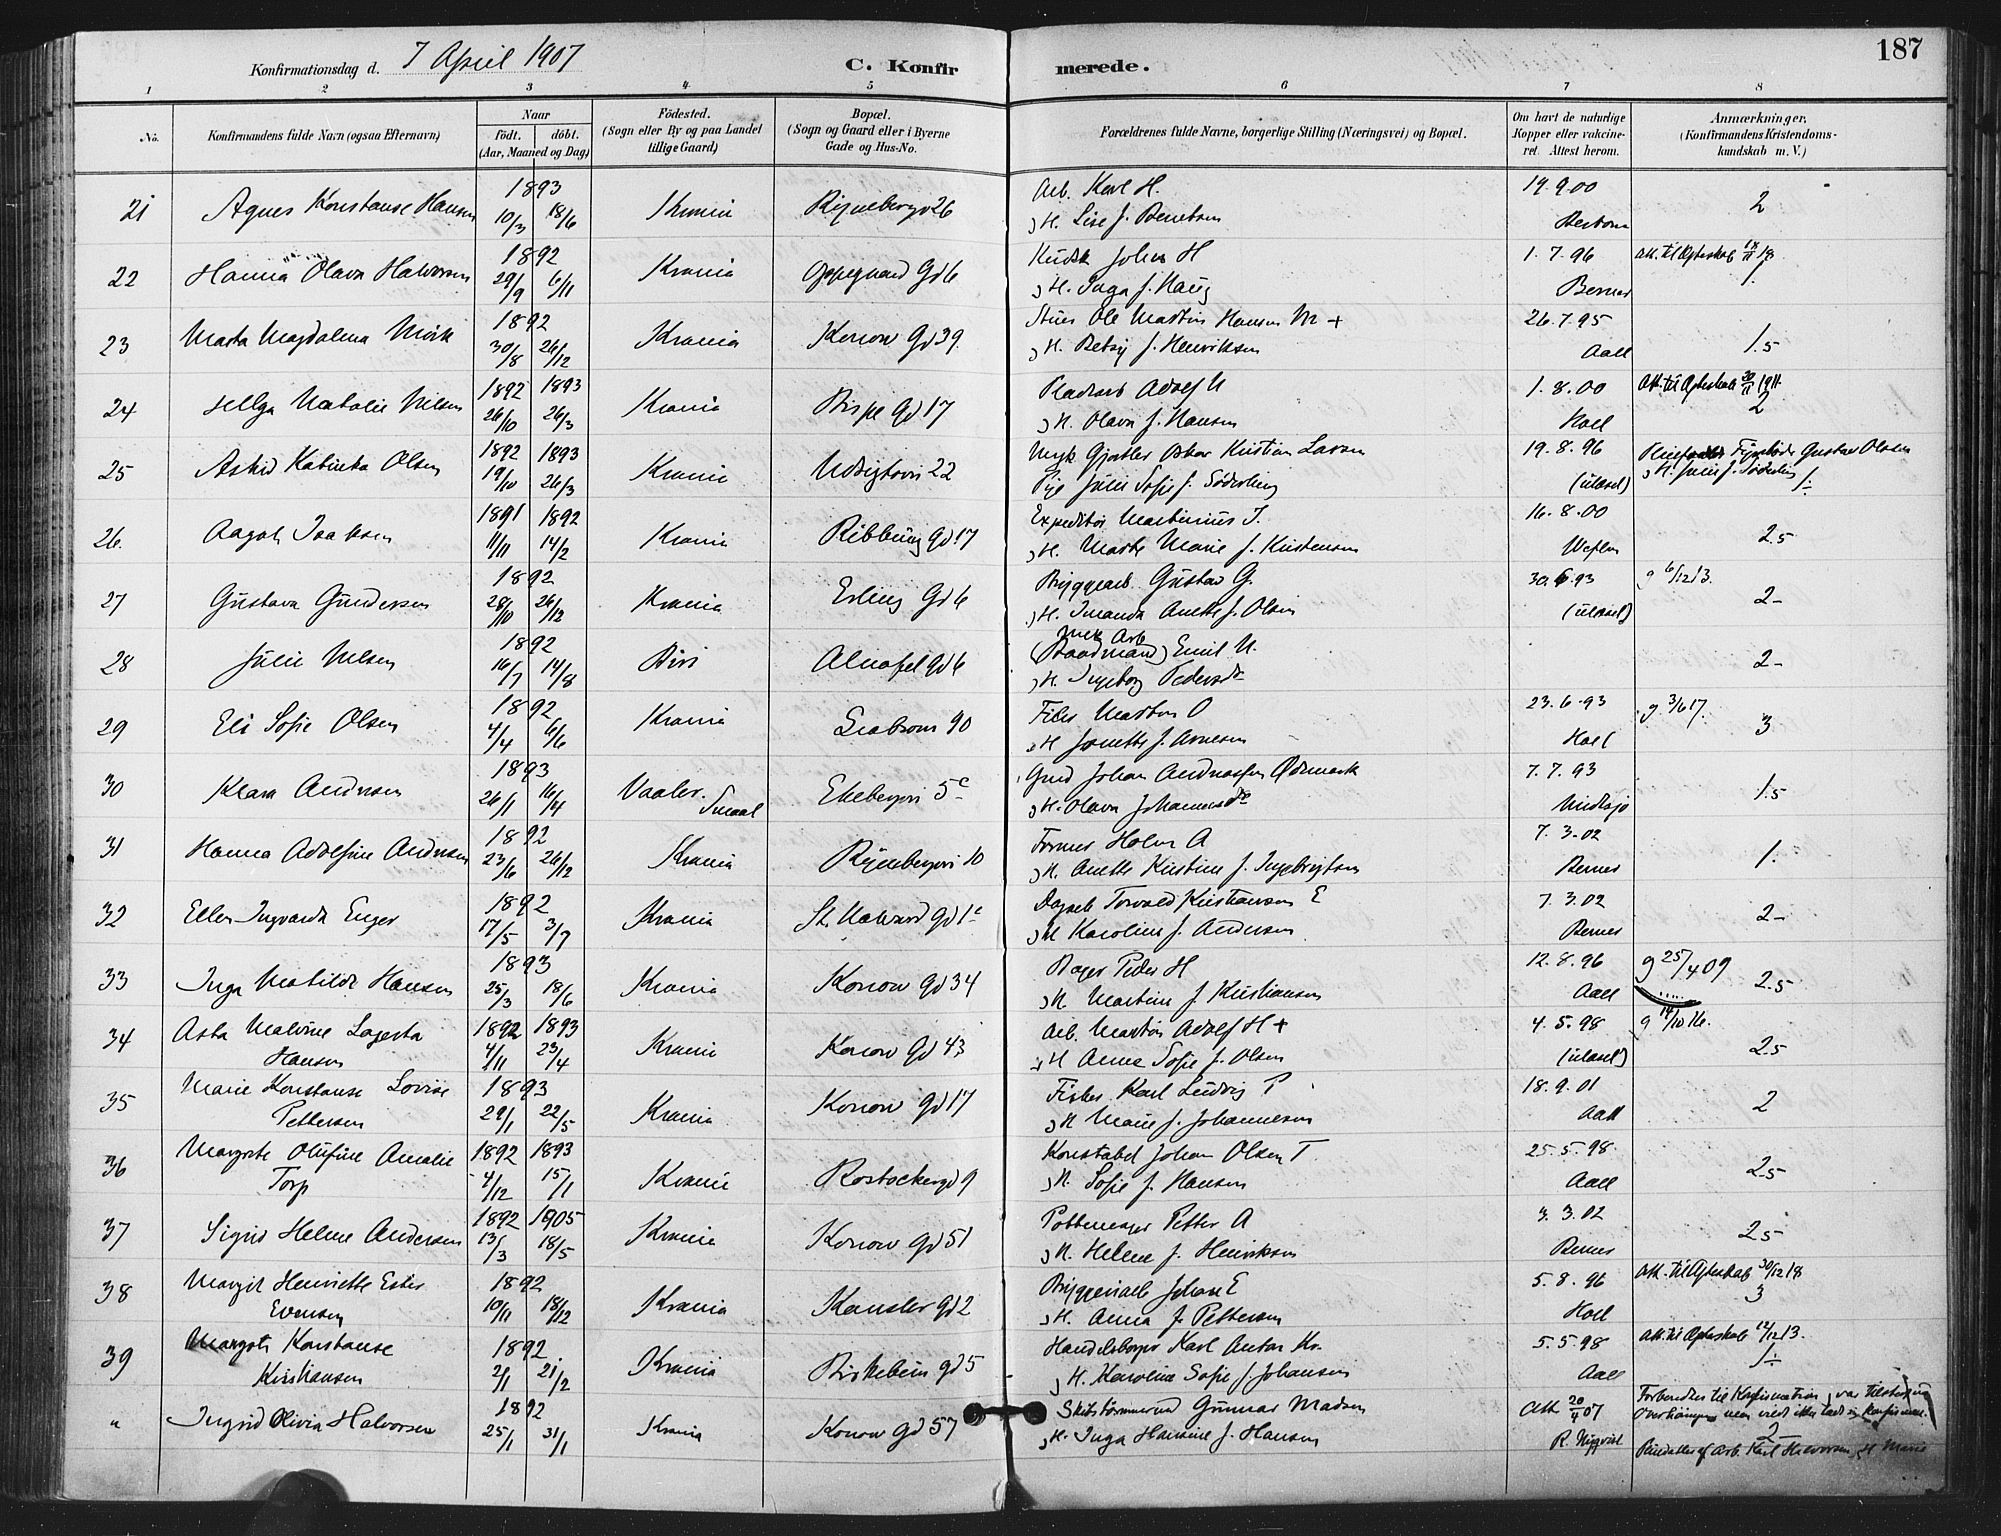 187
Konfirmationsdag d. 7 April 1907
C. Konfirmerede.
1 2 3 4 5 6 7 8
No.
Konfirmandens fulde Navn (ogsaa Efternavn)
Naar
födt. döbt.
(Aar, Maaned og Dag)
Födested.
(Sogn eller By og paa Landet tillige Gaard)
Bopæl.
(Sogn og Gaard eller i Byerne Gade og Hus-No.
Forældrenes fulde Navne, borgerlige Stilling (Næringsvei) og Bopæl.
Om havt de naturlige Kopper eller vakcineret. Attest herom.
Anmærkninger.
(Konfirmandens Kristendomskundskab m. V.)
21 Agnes Konstanse Hansen 1893 10/3 18/6 Krania 26 Arb. Karl H. 19.9.00 2
H. Lise f. Berntsen
22 Hanna Olava Halvorsen 1892 29/9 6/11 Krania Oppegaard Gd 6 Kudsk Johan H 1.7.96 Att. til Ægteskab 1.
H. Inga f. Haug Berner
23 Marta Magdalena Mörk 1892 30/8 26/12 Krania Konow Gd 39 Ole Martin Hansen M + 26.7.95 1.5
H. Betsy f. Henriksen Aall
24 Helga Natalie Nilsen 1892 1893 26/10 26/3 Krania Bispe Gd 17 Adolf N 1.8.00 Att. til Ægteskab 30/11 1911. 2
H. Olava f. Hansen Hoel
25 Astrid Katinka Olsen 1892 1893 19/10 26/3 Krania Udsigtsvei 22 Ugk Gjørtler Oskar Kristian Larsen 19.8.96 Gustav Olsen
Pige Julie Sofie f. Söderling (ulæsel) H. Julie f. Söderling
26. Aagot Isaksen 1891 1892 11/11 14/2 Krania Ribbung Gd 17 Expeditör Martinius I. 16.8.00 2.5
H. Marte Marie f. Kristensen
27 Gustava Gundersen 1892 28/10 26/12 Krania Erling Gd 6 Bryggearb. Gustav G. 30.6.93 g 6/12 13. 2-
H. Amanda Anette f. Olsen (ulæsel)
28 Julie Nilsen 1892 16/7 14/8 Biri Alnafet Gd 6 mek Arb (Baadmand) Emil N. 2-
H. Ingeborg Pedersdr
29 Eli Sofie Olsen 1892 4/4 6/6 Krania 90 Filer Martin O 23.6.93 g 3/6 17. 3
H Janette f. Arnesen Hoel
30 Klara Andresen 1893 26/1 16/4 Vaaler. Smaal Ekebergvei 5c Johan Andreassen Ødemark 7.7.93 1.5
H. Olava Johannesdr
31 Hanna Adolfine Andresen 1892 23/6 26/12 Krania 10 Former Holm A 7.3.02 1.
H. Anette Kristine f. Ingebrigtsen Berner
32 Ellen Ingvarda Enger 1892 17/5 3/7 Krania St. Halvard Gd 1c Dagarb Torvald Kristiansen E 7.3.02 2-
H Karoline f. Andersen Berner
33 Inga Matilde Hansen 1893 25/3 18/6 Krania Konow Gd 34 Bager Peder H 12.8.96 g 25/4 09 2.5
H Martine f Kristiansen Aall
34 Asta Malvine Lagerta Hansen 1892 1893 4/11 23/4 Krania Konow Gd 43 Arb. Martin Adolf H + 4.5.98 g 14/10 16. 2.5
H Anna Sofie f. Olsen (ulæsel)
35 Marie Konstanse Lovise Pettersen 1893 29/1 22/5 Krania Konow Gd 17 Fisker Karl Ludvig P 18.9.01 2
H Marie f. Johannesen Aall
36 Margrete Olufine Amalie Torp 1892 1893 4/12 15/1 Krania Rostockergd 9 Konstabel Johan Olsen T 25.5.98 2.5
H. Sofie f. Hansen Aall
37 Sigrid Helene Andersen 1892 1905 13/3 18/5 Krania Konow Gd 51 Pottemager Petter A 3.3.02 2.5
H. Helene f. Henriksen Berner
38 Margit Henriette Ester Evensen 1892 10/11 18/12 Krania Kansler gd 2 Bryggeriarb Johan E 5.8.96 Att. til Ægteskab 30/12 18 3
H. Anna f. Pettersen Hoel
39 Margot Konstanse Kristiansen 1892 2/1 21/2 Krania Birkebein gd 5 Handelsborger Karl Anton Kr. 5.5.98 Att. til Ægteskab 14/12 13.
H. Karoline Sofie f. Johansen Aall
" Ingrid Olivia Halvorsen 1892 25/1 31/1 Krania Konow Gd 57 Skibstömmermd Gunnar Madsen Att 20/4 07 Forberedtes til Konfirmation, var tilstede ved
H. Inga Hansine f. Hansen R. Nyqvist Overhöringen men vilde ikke lade sig konfirmere. 2
Pleiedatter af Arb. Karl Halvorsen H Marie